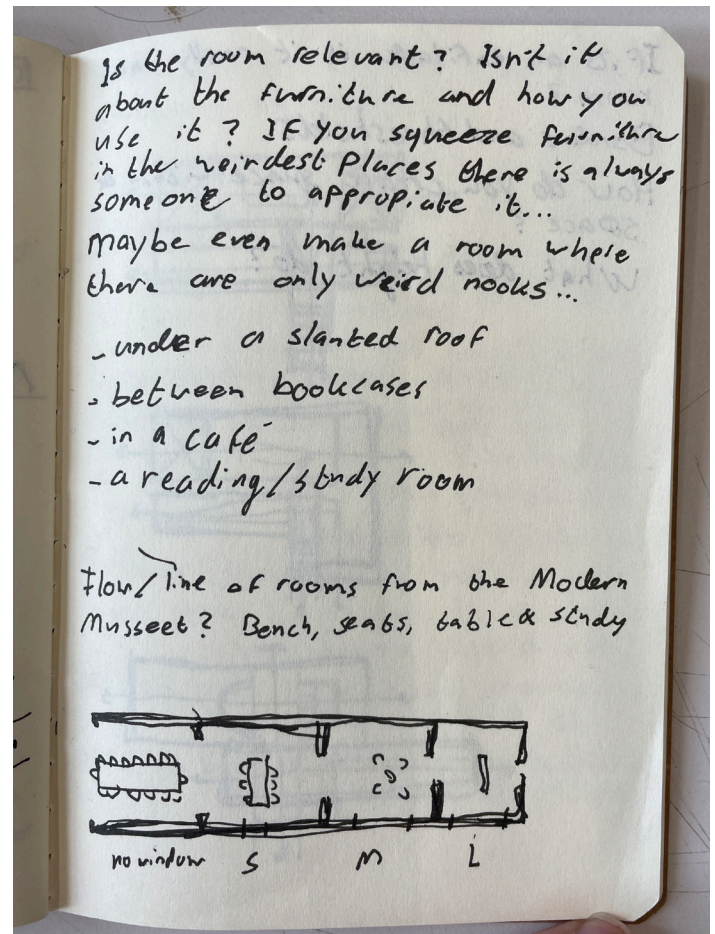 Is the room relevant? Isn't it
about the furniture and how you
use it? If you squeeze furniture
in the weirdest places there is always
someone to appropiate it...
Maybe even make a room where
there are only weird nooks...
- under a slanted roof
- between bookcases
- in a café
- a reading/study room
Flow/line of rooms from the Modern
Musseet? Bench, seats, table & study
no window S M L